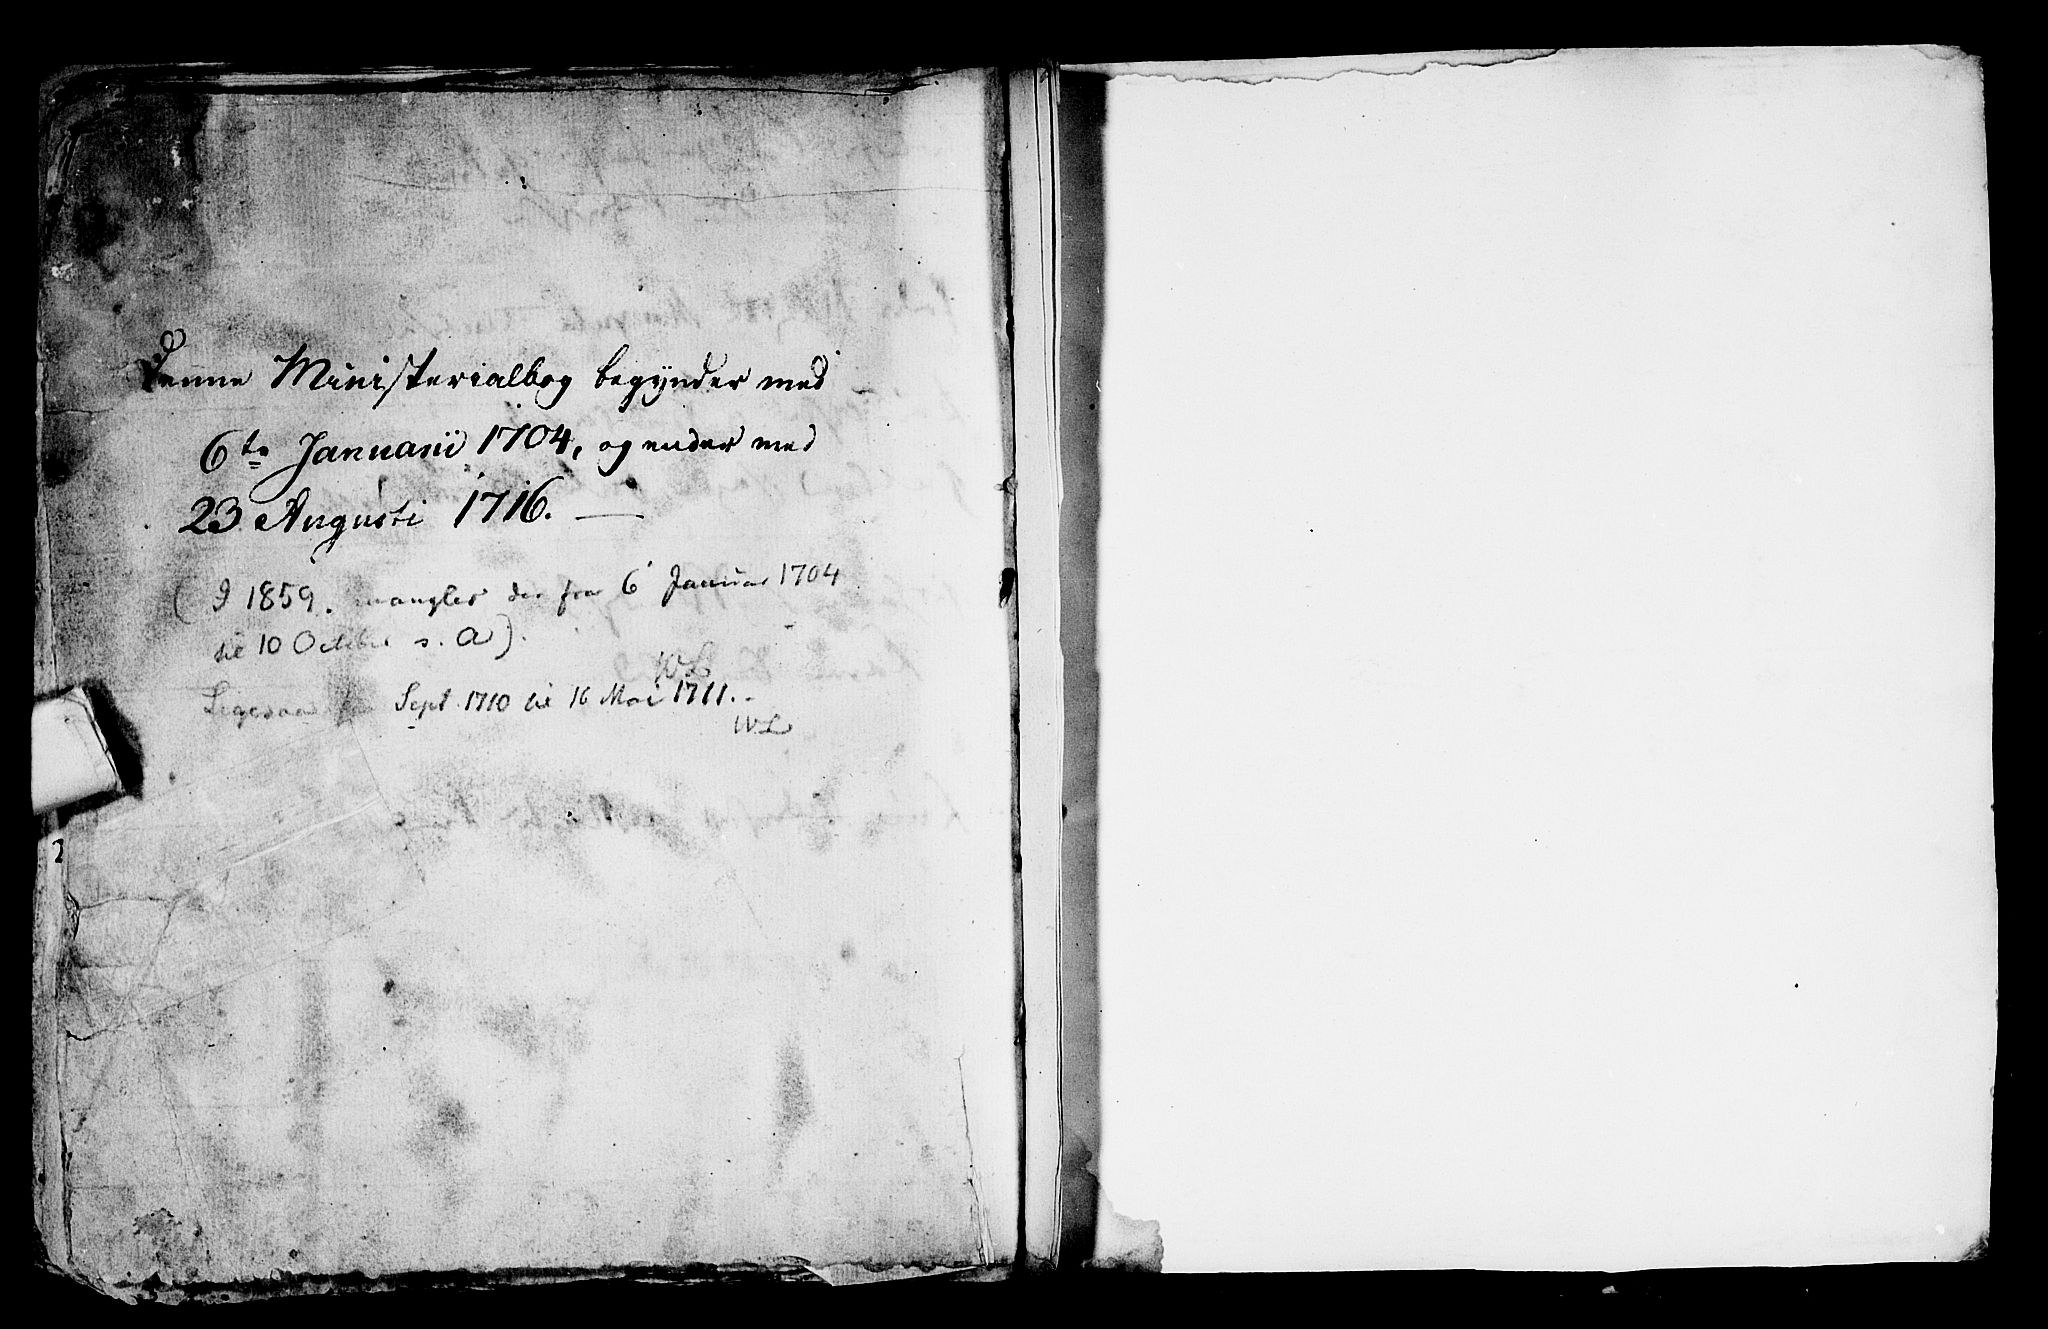 Denne Ministerialbog begynder med
6te Januarii 1704, og ender med
23 Augusti 1716. —
(I 1859. mangler der fra 6' Januar 1704
til 10 October s. A).
WL
Ligesaa fra Sept. 1710 til 16 Mai 1711. -
WL